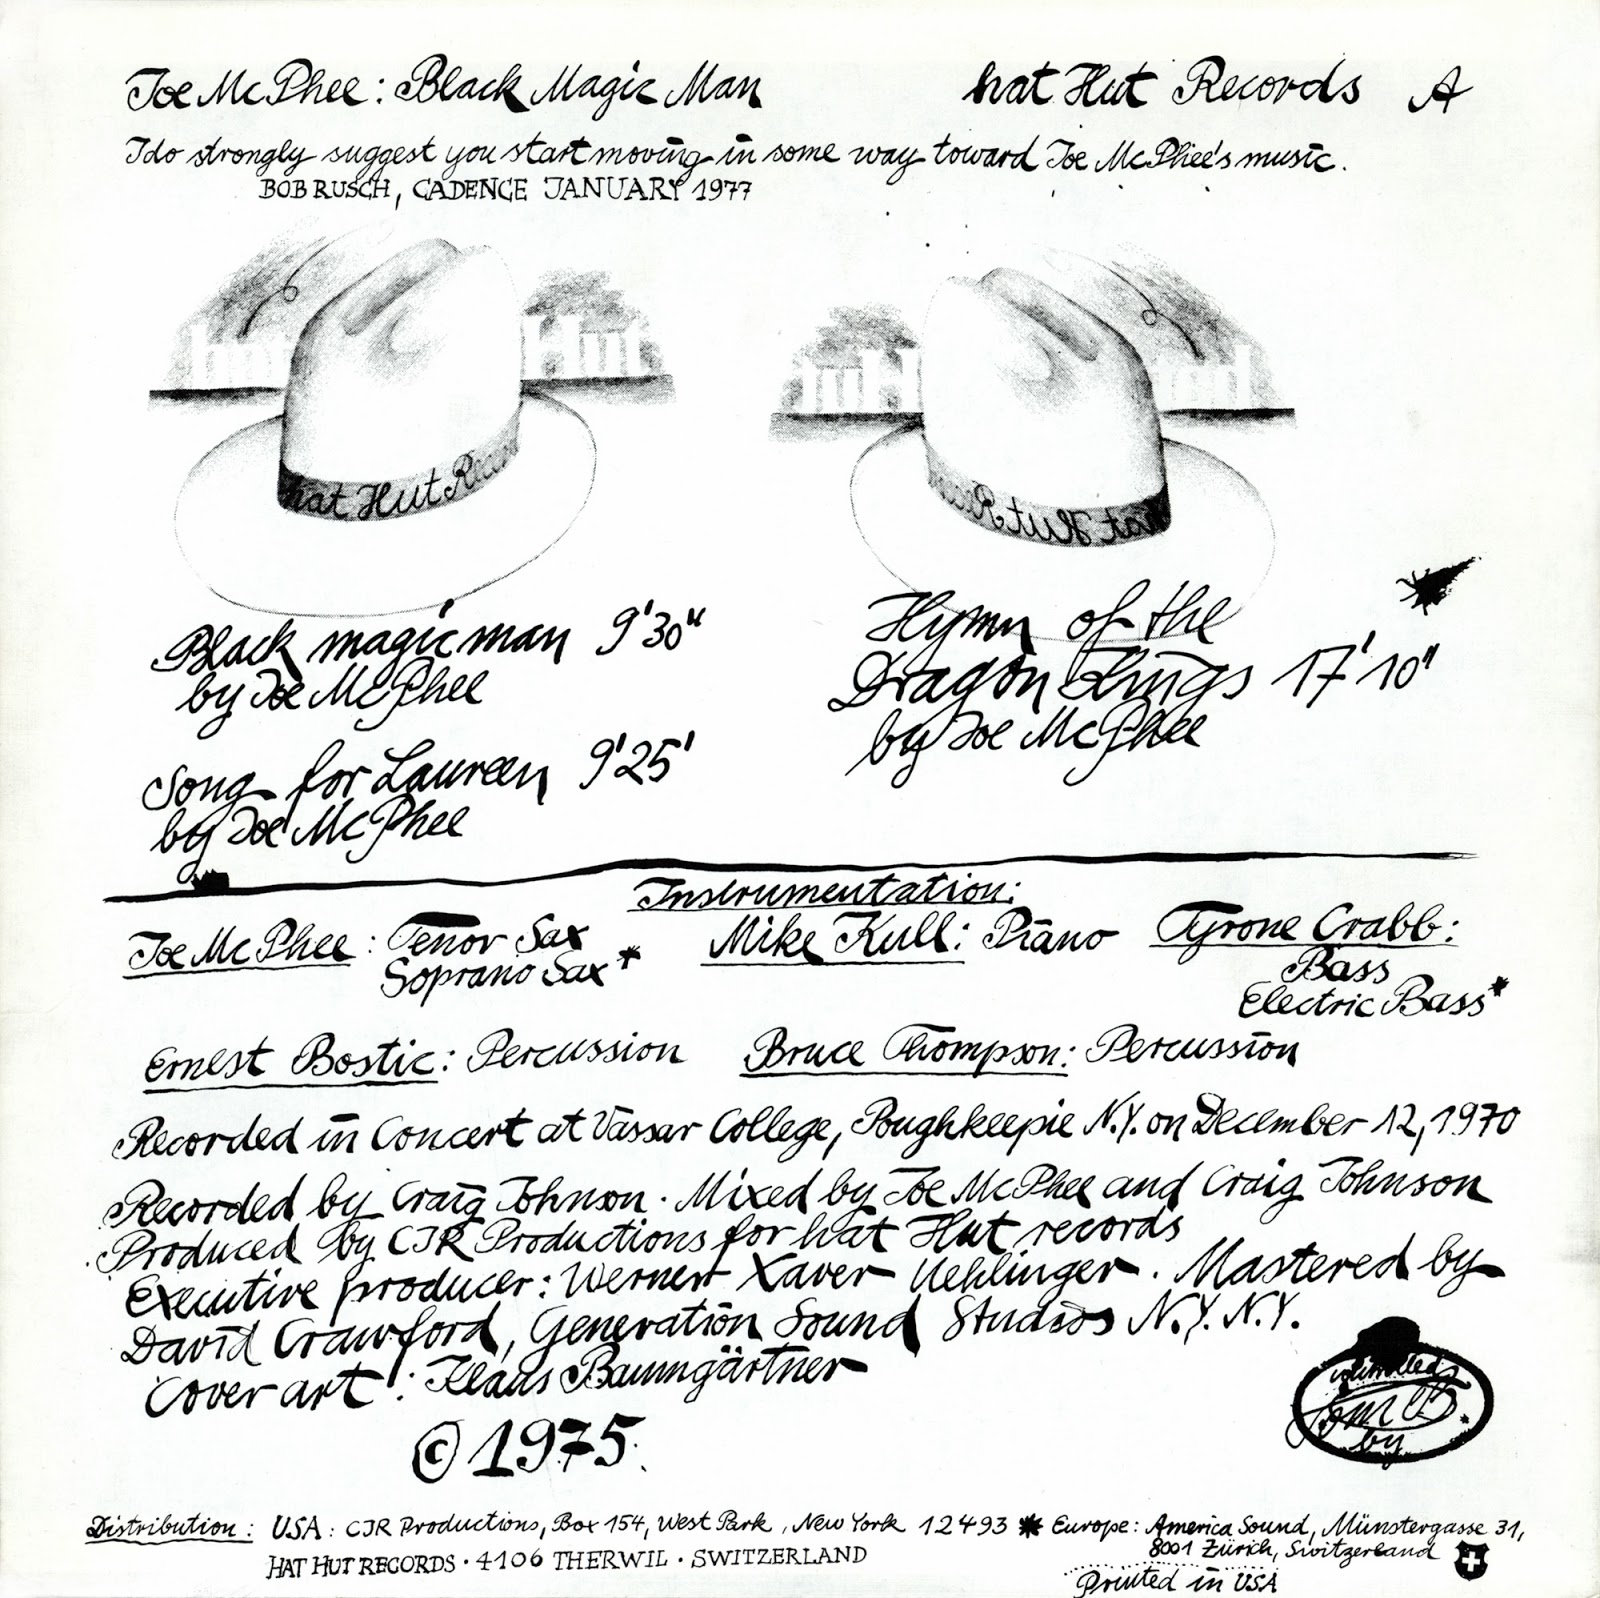 Joe McPhee: Black Magic Man
hat Hut Records A
I do strongly suggest you start moving in some way toward Joe McPhee's music.
BOB RUSCH, CADENCE JANUARY 1977
Hut
hat Hut Recor
hat Hut Rec
Black magic man 9'30"
by Joe McPhee
Song for Laureen 9'25'
by Joe McPhee
Hymn of the
Dragon Kings 17'10"
by Joe McPhee
Instrumentation:
Joe McPhee: Tenor Sax
Soprano Sax*
Mike Kull: Piano
Tyrone Crabb:
Bass
Electric Bass*
Ernest Bostic: Percussion
Bruce Thompson: Percussion
Recorded in Concert at Vassar College, Poughkeepie N.Y. on December 12, 1970
Recorded by Craig Johnson. Mixed by Joe McPhee and Craig Johnson
Produced by CJR Productions for hat Hut records
Executive producer: Werner Xaver Uehlinger. Mastered by
David Crawford, Generation Sound Studios N.Y. N.Y.
Cover art: Klaus Baumgärtner
© 1975.
by
Distribution: USA: CJR Productions, Box 154, West Park, New York 12493 * Europe: America Sound, Münstergasse 31,
8001 Zürich, Switzerland
HAT HUT RECORDS · 4106 THERWIL · SWITZERLAND
Printed in USA